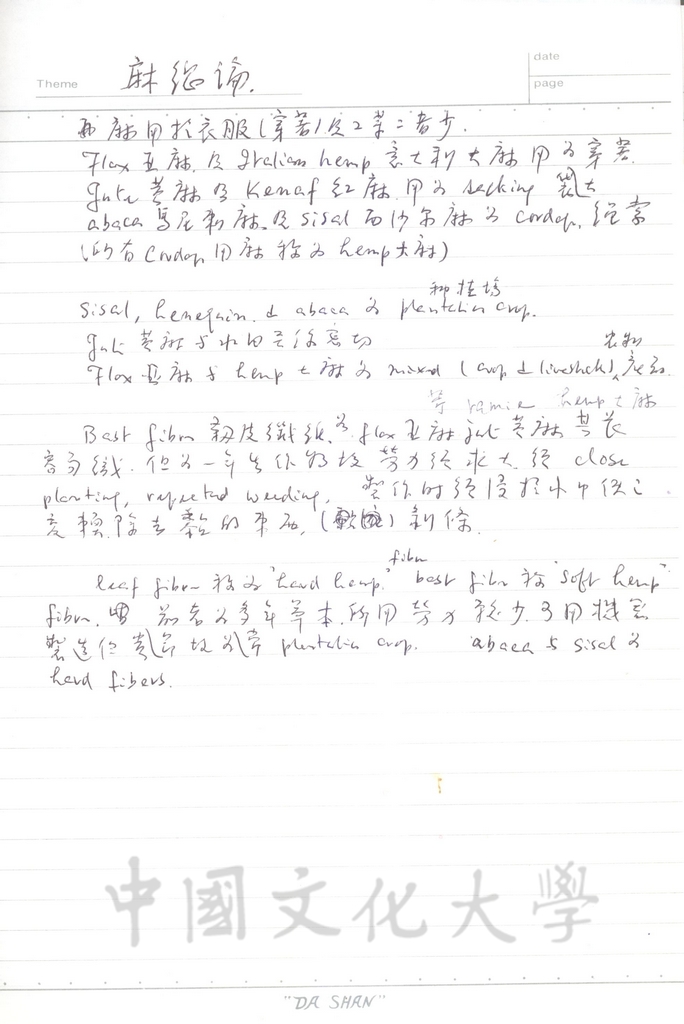 Theme 麻總論.
date
page
麻用於衣服(穿著)及工業二者少.
Flax 亞麻 及 Italian hemp 意大利大麻 用為穿著
Jute 黃麻 及 Kenaf 紅麻 用為 sacking 製
abaca 馬尼剌麻 及 sisal 西沙尔麻 為 cordage, 繩索
(所有 cordage 用麻 称為 hemp 大麻)
種植場
sisal, henequin. & abaca 為 plantation crop.
Jute 黃麻 与水田 密切
農物
Flax 亞麻 与 hemp 大麻 為 mixed (crop & livestock)
等 ramie hemp 大麻
Bast fiber 韌皮纖維 為 flax 亞麻 jute 黃麻 其莖
高纖. 但為一年生作物故 勞力須求大 須 close
planting, repeated weeding, 製作時須浸於水中
除去黏的東西, 剝條
fiber
leaf fiber 称為 "hard hemp." bast fiber 称 "soft hemp"
fiber. 前者為多年草本. 所用勞力較少 可用機器
製造但 故為 plantation crop. abaca 与 sisal 為
hard fibers.
中國文化大學
"DA SHAN"